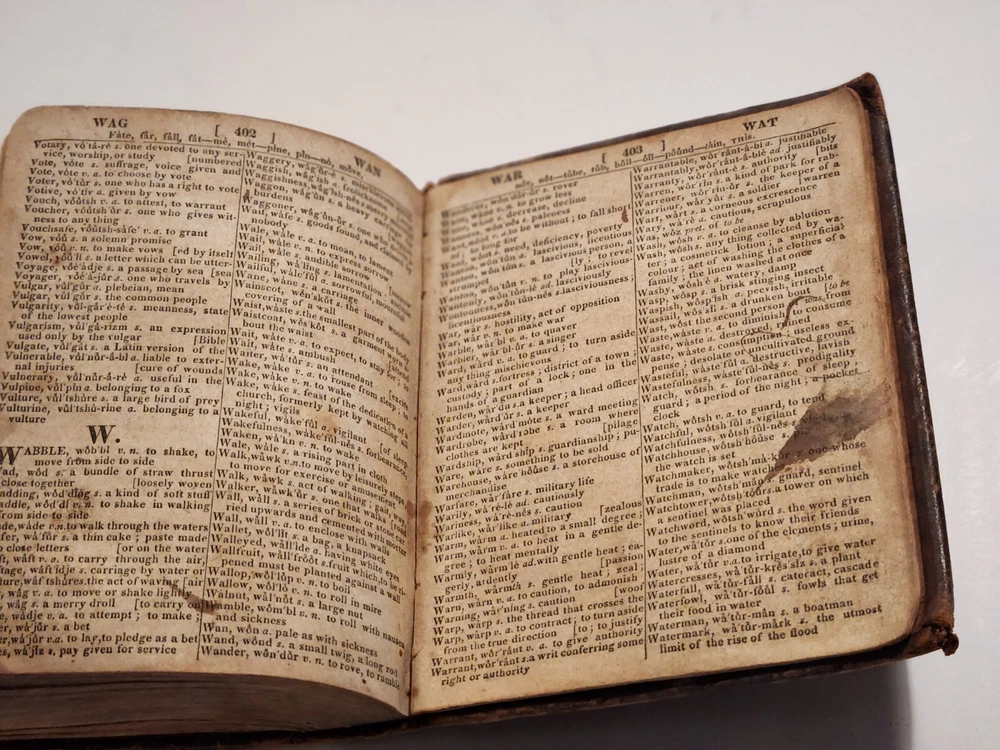 WAG
[ 402 ]
WAN
Fàte, får, fåll, fåt—mè, mét—pìne, pín—nó, môve,
Votary, vó'tá-rè s. one devoted to any ser-
vice, worship, or study [numbered
Vote, vòte s. suffrage, voice given and
Vote, vòte v. a. to choose by vote
Voter, vò'tůr s. one who has a right to vote
Votive, vò'tiv a. given by vow
Vouch, vòůtsh v. a. to attest, to warrant
Voucher, vòůtsh'ůr s. one who gives wit-
ness to any thing
Vouchsafe, vòůtsh-sàfe' v. a. to grant
Vow, vòů s. a solemn promise
Vow, vòů v. n. to make vows [ed by itself
Vowel, vòů'il s. a letter which can be utter-
Voyage, vòè'àdje s. a passage by sea [sea
Voyager, vòè'á-jůr s. one who travels by
Vulgar, vůl'gůr a. plebeian, mean
Vulgar, vůl'gůr s. the common people
Vulgarity, vůl-går'è-tè s. meanness, state
of the lowest people
Vulgarism, vůl'gå-rizm s. an expression
used only by the vulgar [Bible
Vulgate, vůl'gåt s. a Latin version of the
Vulnerable, vůl'nůr-å-bl a. liable to exter-
nal injuries [cure of wounds
Vulnerary, vůl'nůr-å-rè a. useful in the
Vulpine, vůl'pin a. belonging to a fox
Vulture, vůl'tshùre s. a large bird of prey
Vulturine, vůl'tshù-rine a. belonging to a
vulture
W.
WABBLE, wôb'bl v. n. to shake, to
move from side to side
ad, wôd s. a bundle of straw thrust
close together [loosely woven
adding, wôd'dìng s. a kind of soft stuff
addle, wôd'dl v. n. to shake in walking
from side to side
ade, wàde v.n. to walk through the waters
fer, wà'fůr s. a thin cake; paste made
o close letters [or on the water
ft, wåft v. a. to carry through the air,
tage, wåf'tìdje s. carriage by water or
ture, wåf'tshùre s. the act of waving [air
wåg v. a. to move or shake lightly
wåg s. a merry droll [to carry on
e, wàdje v. a. to attempt; to make
er, wà'jůr s. a bet
er, wà'jůr v. a. to lay, to pledge as a bet
es, wà'jìz s. pay given for service
Waggery, wåg'ůr-è s.
Waggish, wåg'ish a.
Waggishness, wåg'ish-nès s.
Waggon, wåg'ůn s. a heavy
burdens
Waggoner, wåg'ůn-ůr s. one who
Waif, wàfe s. goods found, and claimed by
nobody
Wail, wàle v. a. to moan, to lament
Wail, wàle v. n. to express sorrow
Wail, wàle s. audible sorrow
Wailing, wà'ling s. lamentation
Wailful, wàle'fůl a. sorrowful, mournful
Wain, wàne s. a carriage
Wainscot, wèn'skůt s. the inner wooden
covering of a wall
Waist, wàste s. the smallest part of the body
Waistcoat, wès'kůt s. a garment worn a-
bout the waist
Wait, wàte v. a. to expect, to stay for
Wait, wàte s. ambush
Waiter, wà'tůr s. an attendant
Wake, wàke v. n. to watch
Wake, wàke v. a. to rouse from sleep
Wake, wàke s. the feast of the dedication of a
church, formerly kept by watching all
night; vigils
Wakeful, wàke'fůl a. vigilant [of sleep
Wakefulness, wàke'fůl-nès s. forbearance
Waken, wà'kn v. n. to wake
Wale, wàle s. a rising part in cloth
Walk, wåwk v. n. to move by leisurely steps,
to move for exercise or amusement
Walk, wåwk s. act of walking; gait, way
Walker, wåwk'ůr s. one that walks
Wall, wåll s. a series of brick or stone car-
ried upwards and cemented with mortar
Wall, wåll v. a. to enclose with walls
Wallet, wôl'lìt s. a bag, a knapsack
Walleyed, wåll'ìde a. having white eyes
Wallfruit, wåll'fròôt s. fruit which, to be ri-
pened must be planted against a wall
Wallop, wôl'lůp v. n. to boil
Wallow, wôl'lò v. n. to roll in mire
Walnut, wåll'nůt s. a large nut
Wamble, wôm'bl v. n. to roll with nausea
and sickness
Wan, wôn a. pale as with sickness
Wand, wônd s. a small twig, a long rod
Wander, wôn'důr v. n. to rove, to ramble
WAR
[ 403 ]
WAT
nór, nôt—tùbe, tůb, bůll—ôìl—pòůnd—thin, THis.
s. rover
v. n. to grow less
s. decrease, decline
a. paleness
v. a. to be without; to fall short
of, to long for
Want, wônt s. need, deficiency, poverty
Wanton, wôn'tůn a. lascivious, licentious
Wanton, wôn'tůn s. a lascivious person, a
trifler
Wanton, wôn'tůn v. n. to play lasciviously, to revel
Wantonly, wôn'tůn-lè ad. lasciviously
Wantonness, wôn'tůn-nès s. lasciviousness;
licentiousness
War, wår s. hostility, act of opposition
War, wår v. n. to make war
Warble, wår'bl v. a. to quaver
Warbler, wår'bl-ůr s. a singer
Ward, wård v. a. to guard; to turn aside
any thing mischievous
Ward, wård s. fortress; district of a town;
custody; part of a lock; one in the
hands of a guardian
Warden, wår'dn s. a keeper; a head officer
Warder, wår'důr s. a keeper
Wardmote, wård'mòte s. a ward meeting
Wardrobe, wård'ròbe s. a room where
clothes are kept [pilage
Wardship, wård'shìp s. guardianship; pu-
Ware, wàre s. something to be sold
Warehouse, wàre'hòůse s. a storehouse of
merchandise
Warfare, wår'fàre s. military life
Warily, wà'rè-lè ad. cautiously
Wariness, wà'rè-nès s. caution
Warlike, wår'lìke a. military
Warm, wårm a. heated in a small degree;
Warm, wårm v. a. to heat in a gentle de-
gree; to heat mentally [zealous
Warmly, wårm'lè ad. with gentle heat; ea-
gerly, ardently [passion
Warmth, wårmth s. gentle heat; zeal;
Warn, wårn v. a. to caution, to admonish
Warning, wår'ning s. caution
Warp, wårp s. the thread that crosses the
Warp, wårp v. a. to contract; to turn aside
from the direction [to; to justify
Warrant, wôr'rånt v. a. to give authority
Warrant, wôr'rånt s. a writ conferring some
right or authority
Warrantable, wôr'rånt-å-bl a. justifiable
Warranty, wôr'rånt-è s. authority [bits
Warren, wôr'rìn s. a kind of park for rab-
Warrener, wôr'rìn-ůr s. keeper of a warren
Warriour, wår'yůr s. soldier
Wart, wårt s. a corneous excrescence
Wary, wà'rè a. cautious, scrupulous
Was, wôz pret. of to be
Wash, wôsh v. a. to cleanse by ablution
Wash, wôsh s. any thing collected by wa-
ter; a cosmetick lotion; a superficial
colour; act of washing the clothes of a
family; the linen washed at once
Washy, wôsh'è a. watery, damp
Wasp, wôsp s. a brisk stinging insect
Waspish, wôsp'ìsh a. peevish, irritable
Wassail, wôs'sìl s. a drunken bout
Wast, wôst the second person of was, from [to be
Waste, wàste v. a. to diminish; to consume
Waste, wàste a. destroyed, ruined
Waste, wàste s. consumption, useless ex-
pense; desolate or uncultivated ground
Wasteful, wàste'fůl a. destructive, lavish
Wastefulness, wàste'fůl-nès s. prodigality
Watch, wôtsh s. forbearance of sleep;
guard; a period of the night; a pocket
clock
Watch, wôtsh v. a. to guard, to tend
Watchful, wôtsh'fůl a. vigilant
Watchfulness, wôtsh'fůl-nès s.
Watchhouse, wôtsh'hòůse s.
the watch is set
Watchmaker, wôtsh'mà-kůr s. one whose
trade is to make watches
Watchman, wôtsh'mån s. guard, sentinel
Watchtower, wôtsh'tòů-ůr s. a tower on which
a sentinel was placed
Watchword, wôtsh'wůrd s. the word given
to the sentinels to know their friends
Water, wå'tůr s. one of the elements; urine,
lustre of a diamond
Water, wå'tůr v. a. to irrigate, to give water
Watercresses, wå'tůr-krès-sìz s. a plant
Waterfall, wå'tůr-fåll s. cataract, cascade
Waterfowl, wå'tůr-fòůl s. fowls that get
their food in water
Waterman, wå'tůr-mån s. a boatman
Watermark, wå'tůr-mårk s. the utmost
limit of the rise of the flood